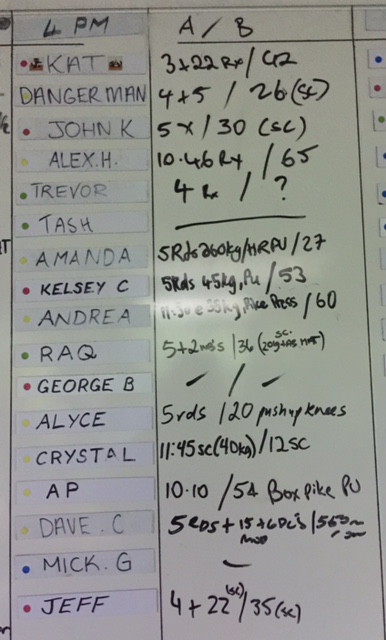 4 PM A / B
KAT 3+22 Rx / 42
DANGERMAN 4+5 / 26 (sc)
JOHN K 5x / 30 (sc)
ALEX.H. 10.46 Rx / 65
TREVOR 4 Rx / ?
TASH
AMANDA 5Rds 260kg/HRPU / 27
KELSEY C 5Rds 45kg, PU / 53
ANDREA 35kg, Pike Press / 60
RAQ 5+2 / 36 (sc.
GEORGE B ✓ / ✓
ALYCE 5rds / 20 pushup knees
CRYSTAL 11:45 sc (40kg) / 12 sc
AP 10.10 / 54 Box pike PU
DAVE.C 5 RDS + 15 + 6 / 
MICK.G -
JEFF 4 + 22 (sc) / 35 (sc)